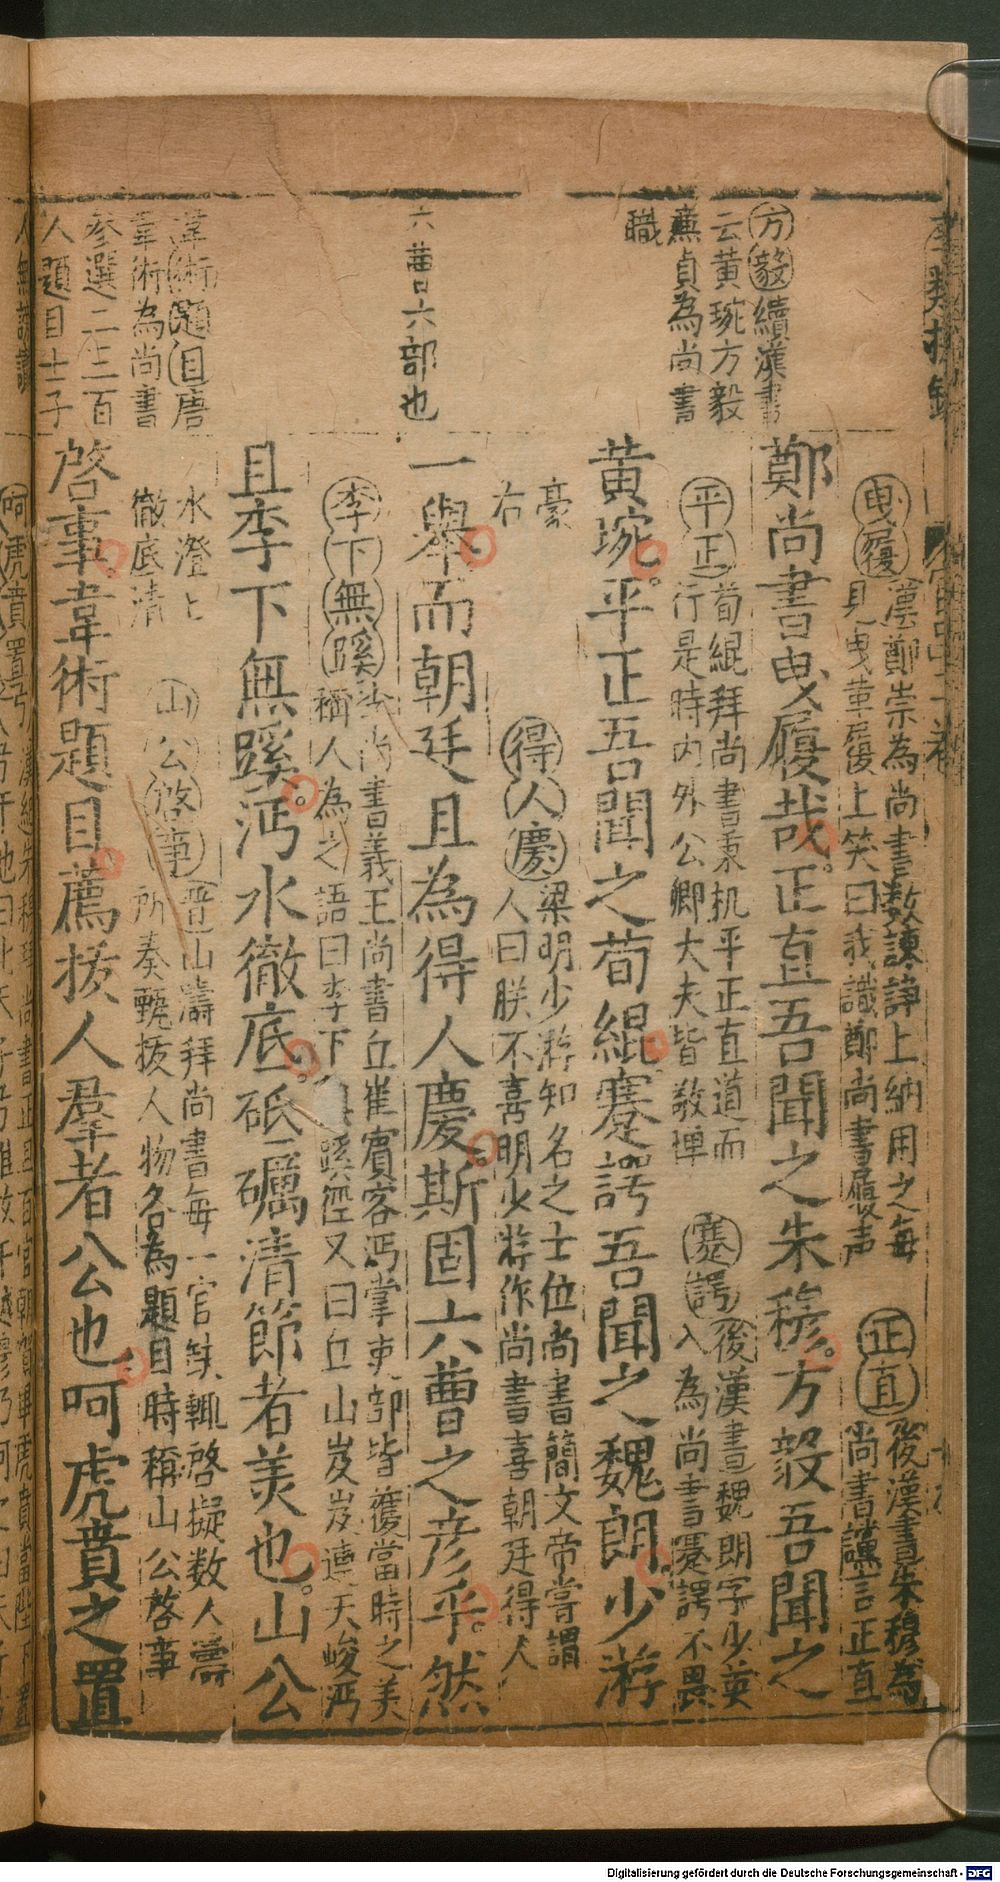 方毅續漢書
云黃琬方毅
蕙貞為尚書
職
六曹六部也
韋術題目唐
韋術為尚書
參選二三百
人題目士子
曳履漢鄭崇為尚書數諫諍上納用之每
見曳革履上笑曰我識鄭尚書履声
正直後漢書朱穆為
尚書讜言正直
鄭尚書曳履哉正直吾聞之朱穆方毅吾聞之
平正荀緄拜尚書秉机平正直道而
行是時内外公卿大夫皆敬憚
蹇諤後漢書魏朗字少英
入為尚書蹇諤不畏
黃琬平正吾聞之荀緄蹇諤吾聞之魏朗少游
豪
右
得人慶梁明少游知名之士位尚書簡文帝嘗謂
人曰朕不喜明少游作尚書喜朝廷得人
一舉而朝廷且為得人慶斯固六曹之彥乎然
李下無蹊 尚書義王尚書丘崔賓客沔掌吏部皆獲當時之美
稱人為之語曰李下無蹊徑又曰丘山岌岌連天峻沔
水澄上
徹底清
且李下無蹊沔水徹底砥礪清節者美也山公
山公啓事晉山濤拜尚書每一官缺輒啓擬数人濤
所奏甄拔人物各為題目時稱山公啓事
啓事韋術題目薦拔人羣者公也呵虎賁之置
Digitalisierung gefördert durch die Deutsche Forschungsgemeinschaft - DFG